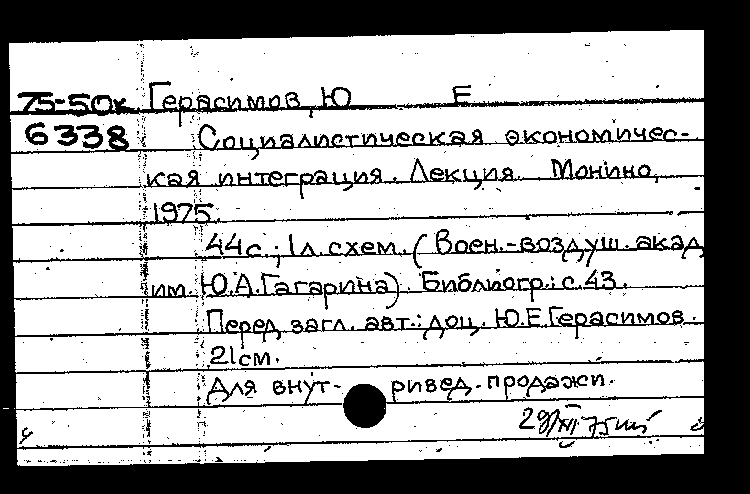 75-50к Герасимов, Ю Е
6338 Социалистическая экономичес-
кая интеграция. Лекция. Монино,
1975.
44с.; 1л.схем. (Воен.-воздуш. акад
им. Ю.А.Гагарина). Библиогр.: с.43.
Перед загл. авт.: доц. Ю.Е.Герасимов.
21см.
Для внут- ривед. продажи.
29/XI 75